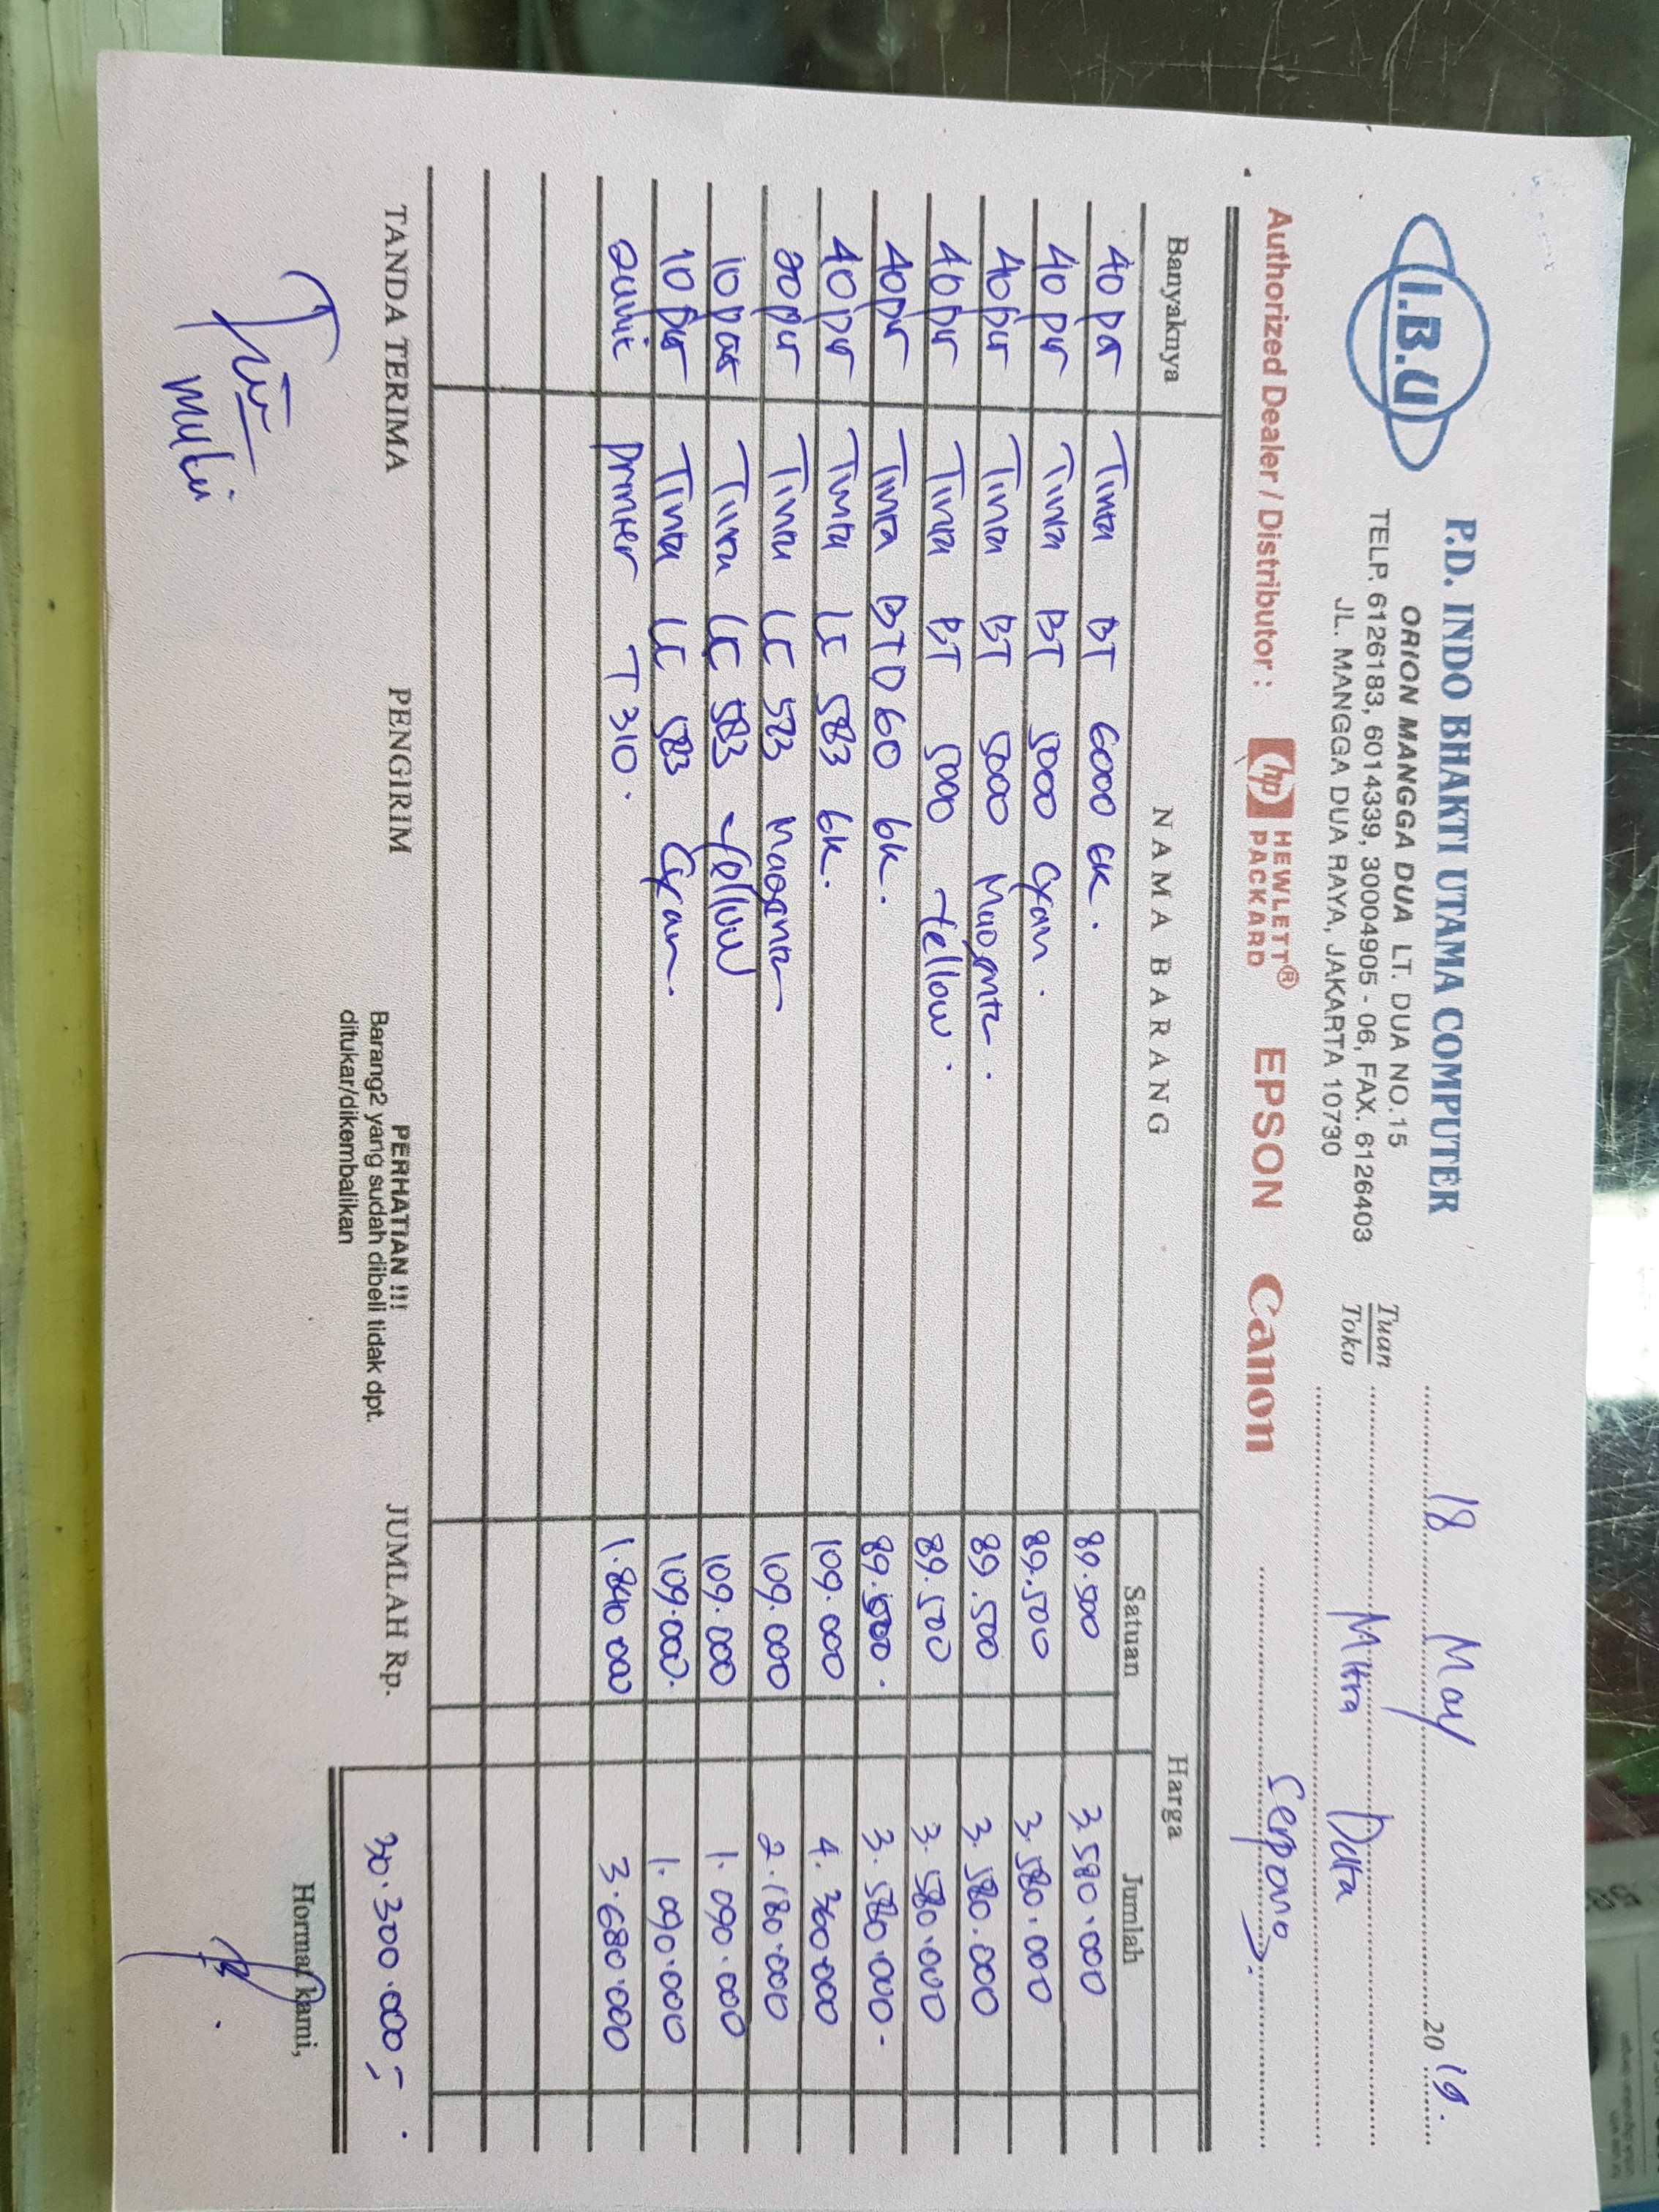 I.B.U
P.D. INDO BHAKTI UTAMA COMPUTER
ORION MANGGA DUA LT. DUA NO.15
TELP. 6126183, 6014339, 30004905 - 06, FAX. 6126403
JL. MANGGA DUA RAYA, JAKARTA 10730
18 May 2019.
Tuan
Toko
Mitra Data
Serpong
Authorized Dealer / Distributor : hp HEWLETT® PACKARD EPSON Canon
Banyaknya NAMA BARANG Harga
Satuan Jumlah
40 pcr Tinta BT 6000 BK. 89.500 3.580.000
40 pcr Tinta BT 5000 Cyan. 89.500 3.580.000
40 pcr Tinta BT 5000 Magenta. 89.500 3.580.000
40 pcr Tinta BT 5000 Yellow. 89.500 3.580.000
40 pcr Tinta BTD 60 BK. 89.500. 3.580.000-
40 pcr Tinta LC 583 BK. 109.000 4.360.000
20 pcr Tinta LC 583 Magenta 109.000 2.180.000
10 pcr Tinta LC 583 Yellow 109.000 1.090.000
10 pcr Tinta LC 583 Cyan. 109.000. 1.090.000
2 unit Printer T 310. 1.840.000 3.680.000
TANDA TERIMA PENGIRIM PERHATIAN !!! JUMLAH Rp. 30.300.000,-
Barang2 yang sudah dibeli tidak dpt.
ditukar/dikembalikan
Hormat kami,